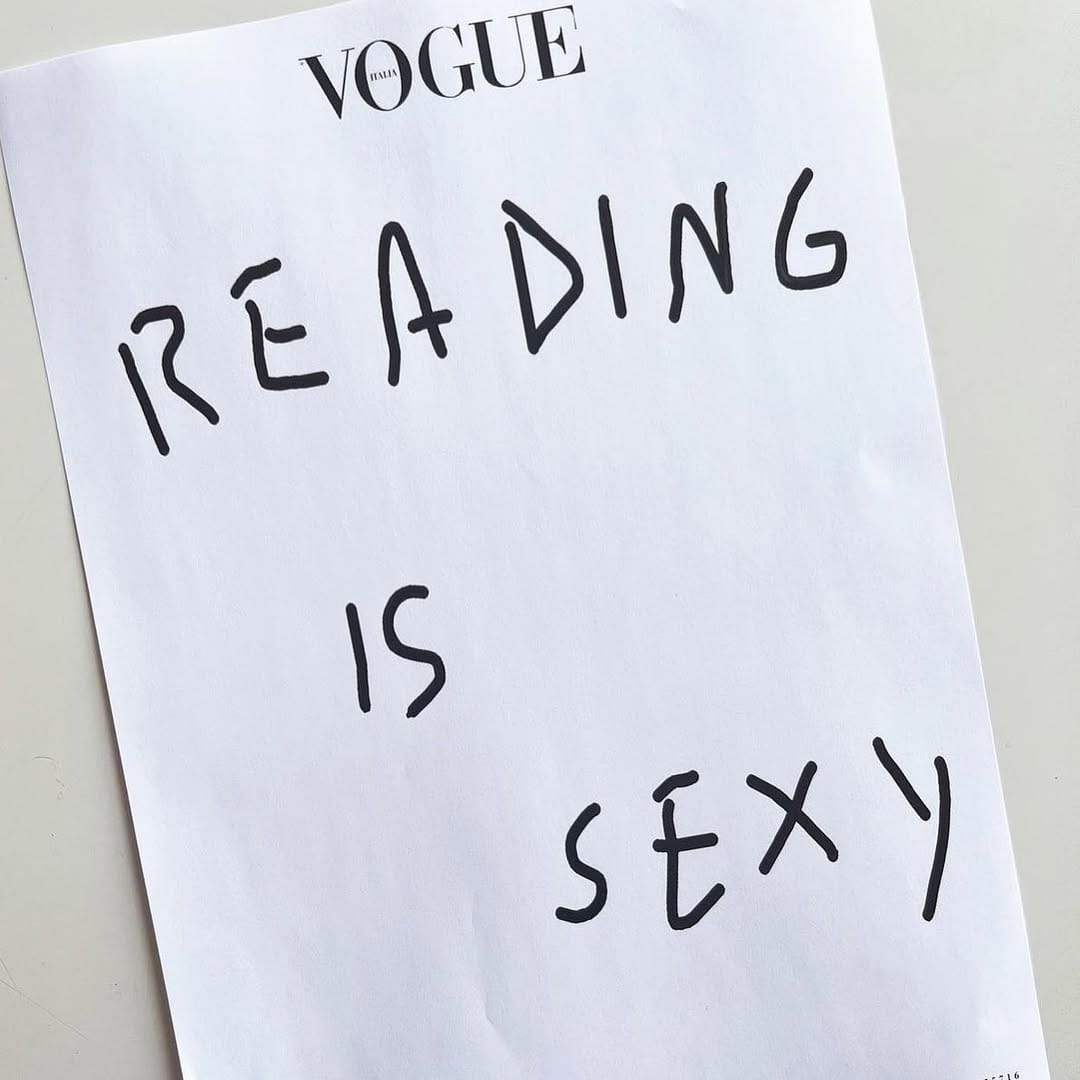 VOGUE
ITALIA
READING
IS
SEXY